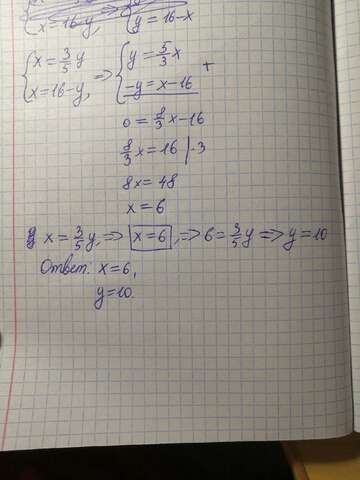 x=16-y, y=16-x
{x=3/5y => {y=5/3x +
x=16-y, -y=x-16
0=8/3x-16
8/3x=16 |·3
8x=48
x=6
x=3/5y, => x=6, => 6=3/5y => y=10
Ответ: x=6,
y=10.